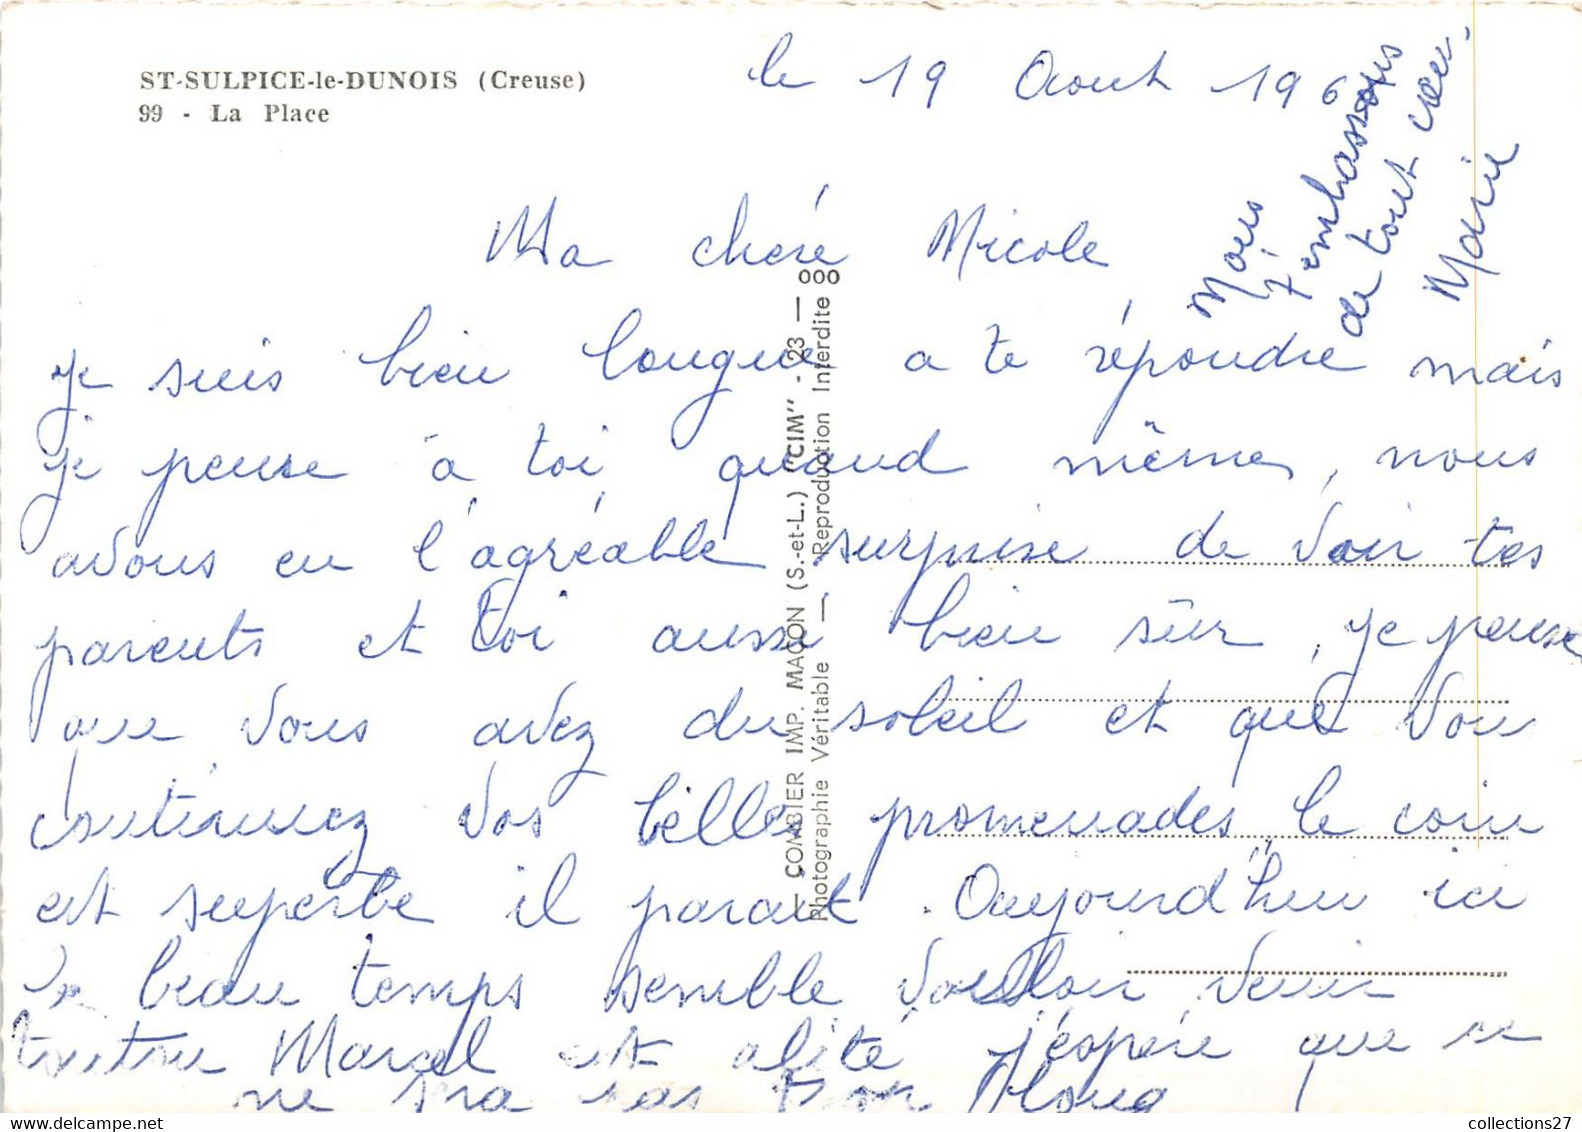 ST-SULPICE-le-DUNOIS (Creuse)
99 - La Place
le 19 Aout 196
Ma cheré Nicole
je suis bien longue a te répondre mais
je pense à toi quand même, nous
avons eu l'agréable surprise de voir tes
parents et toi aussi bien sûr, je pense
que vous avez du soleil et que vou
continuez vos belles promenades le coin
est superbe il parait. Aujourd'hui ici
le beau temps semble vouloir venir
Marcel est alité j'espère que ce
ne sra pas trop long
Nous
t'embrassons
de tout cœur.
Marie
COMBIER IMP. MACON (S.-et-L.) "CIM" - 23 — 000
Photographie Véritable — Reproduction Interdite
collections27